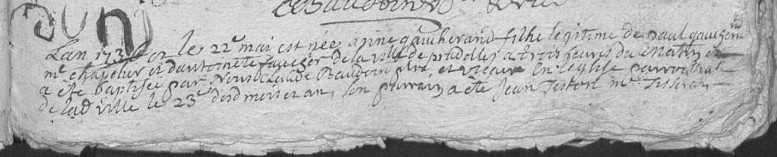 Baudoin
Lan 173 et le 22e mai est née anne gaucherand fille legitime de paul gaucherand
me chapelier et dantoinette faugier de la ville de pradelles a trois heures du matin et
a été baptisée par Nous Claude Baudoin ptre, et vicaire en leglise parroissialle
de lad ville le 23e desd mois et an, son parrain a été Jean Testort me Tisseran